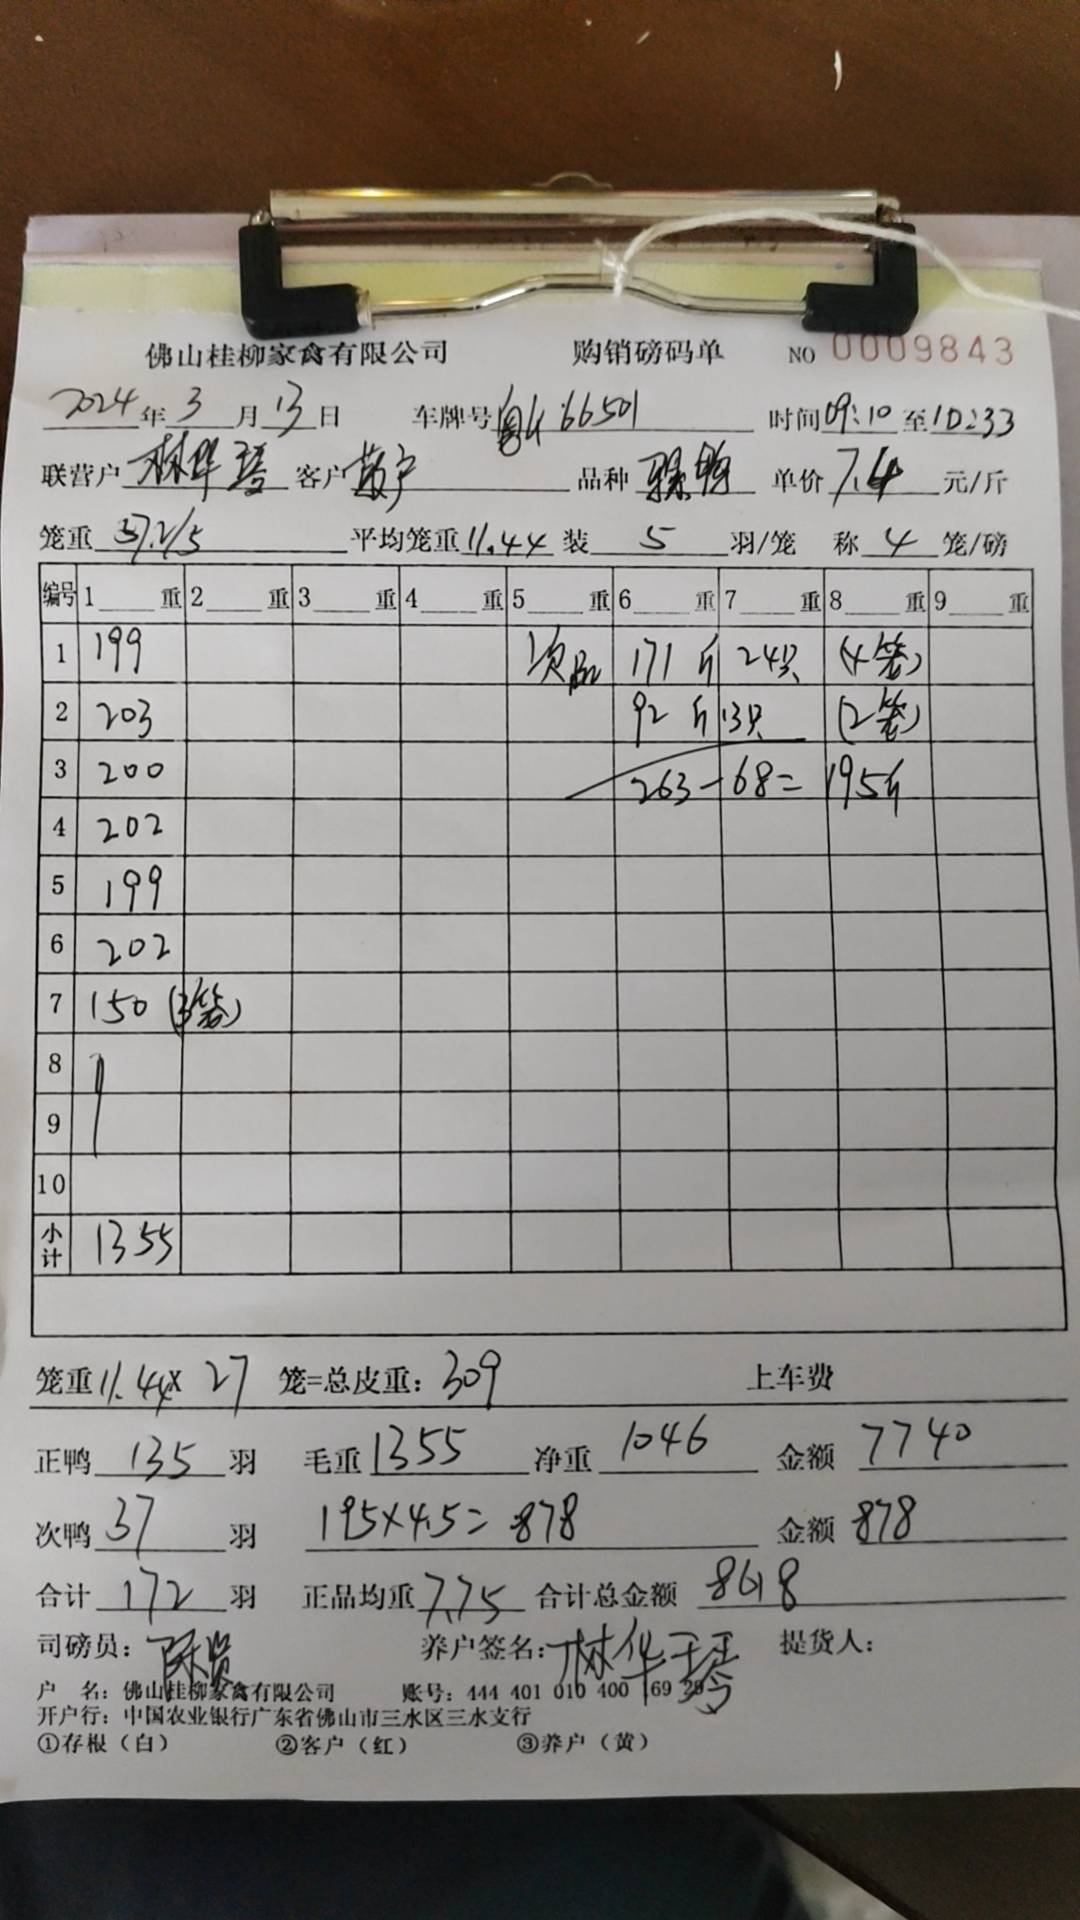 佛山桂柳家禽有限公司 购销磅码单 NO 0009843
2024年3月13日 车牌号 66501 时间09:10至10:33
联营户林华琴 客户散户 品种 单价7.4元/斤
笼重57.2/5 平均笼重11.44装5羽/笼 称4笼/磅
编号 1 重 2 重 3 重 4 重 5 重 6 重 7 重 8 重 9 重
1 199 次品 171斤 24只 (4笼)
2 203 92斤 13只 (2笼)
3 200 263-68=195斤
4 202
5 199
6 202
7 150 (3笼)
8
9
10
小计 1355
笼重11.44×27笼=总皮重:309 上车费
正鸭135羽 毛重1355 净重1046 金额7740
次鸭37羽 195×4.5=878 金额878
合计172羽 正品均重7.75 合计总金额8618
司磅员: 养户签名:林华琴 提货人:
户 名:佛山桂柳家禽有限公司 账号:444 401 010 400 169
开户行:中国农业银行广东省佛山市三水区三水支行
①存根(白) ②客户(红) ③养户(黄)